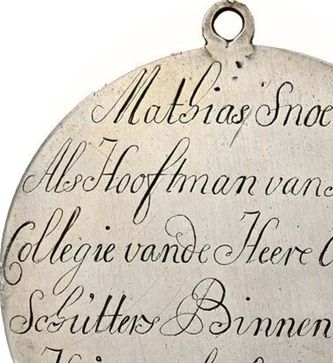 Mathias Snoe
Als Hooftman van
Collegie vande Heere
Schutters Binnen